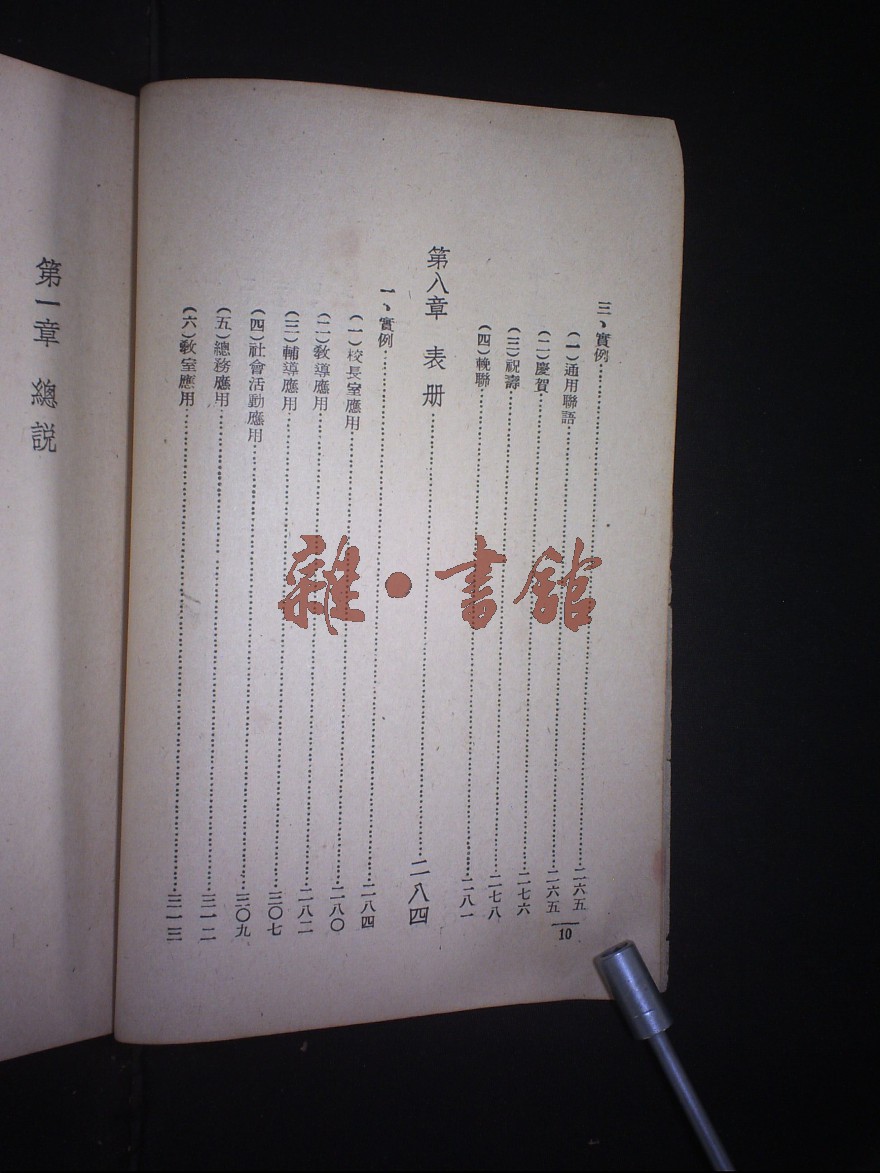 三、實例……二六五
(一)通用聯語……二六五
(二)慶賀……二七六
(三)祝壽……二七八
(四)輓聯……二八一
第八章 表册……二八四
一、實例……二八四
(一)校長室應用……二八〇
(二)教導應用……二八二
(三)輔導應用……三〇七
(四)社會活動應用……三〇九
(五)總務應用……三一二
(六)教室應用……三一三
10
第一章 總説
雜·書館